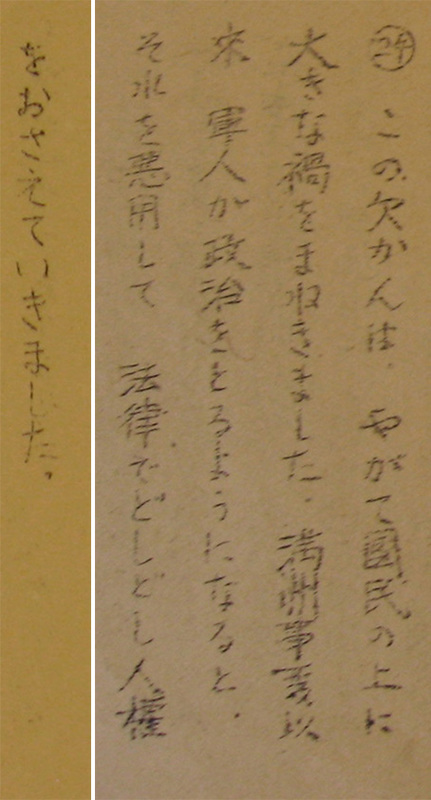 ㊕ この欠かんは、やがて國民の上に
大きな禍をまねきました。満洲事変以
来 軍人が政治をとるようになると、
それを悪用して 法律でどしどし人権
をおさえていきました。